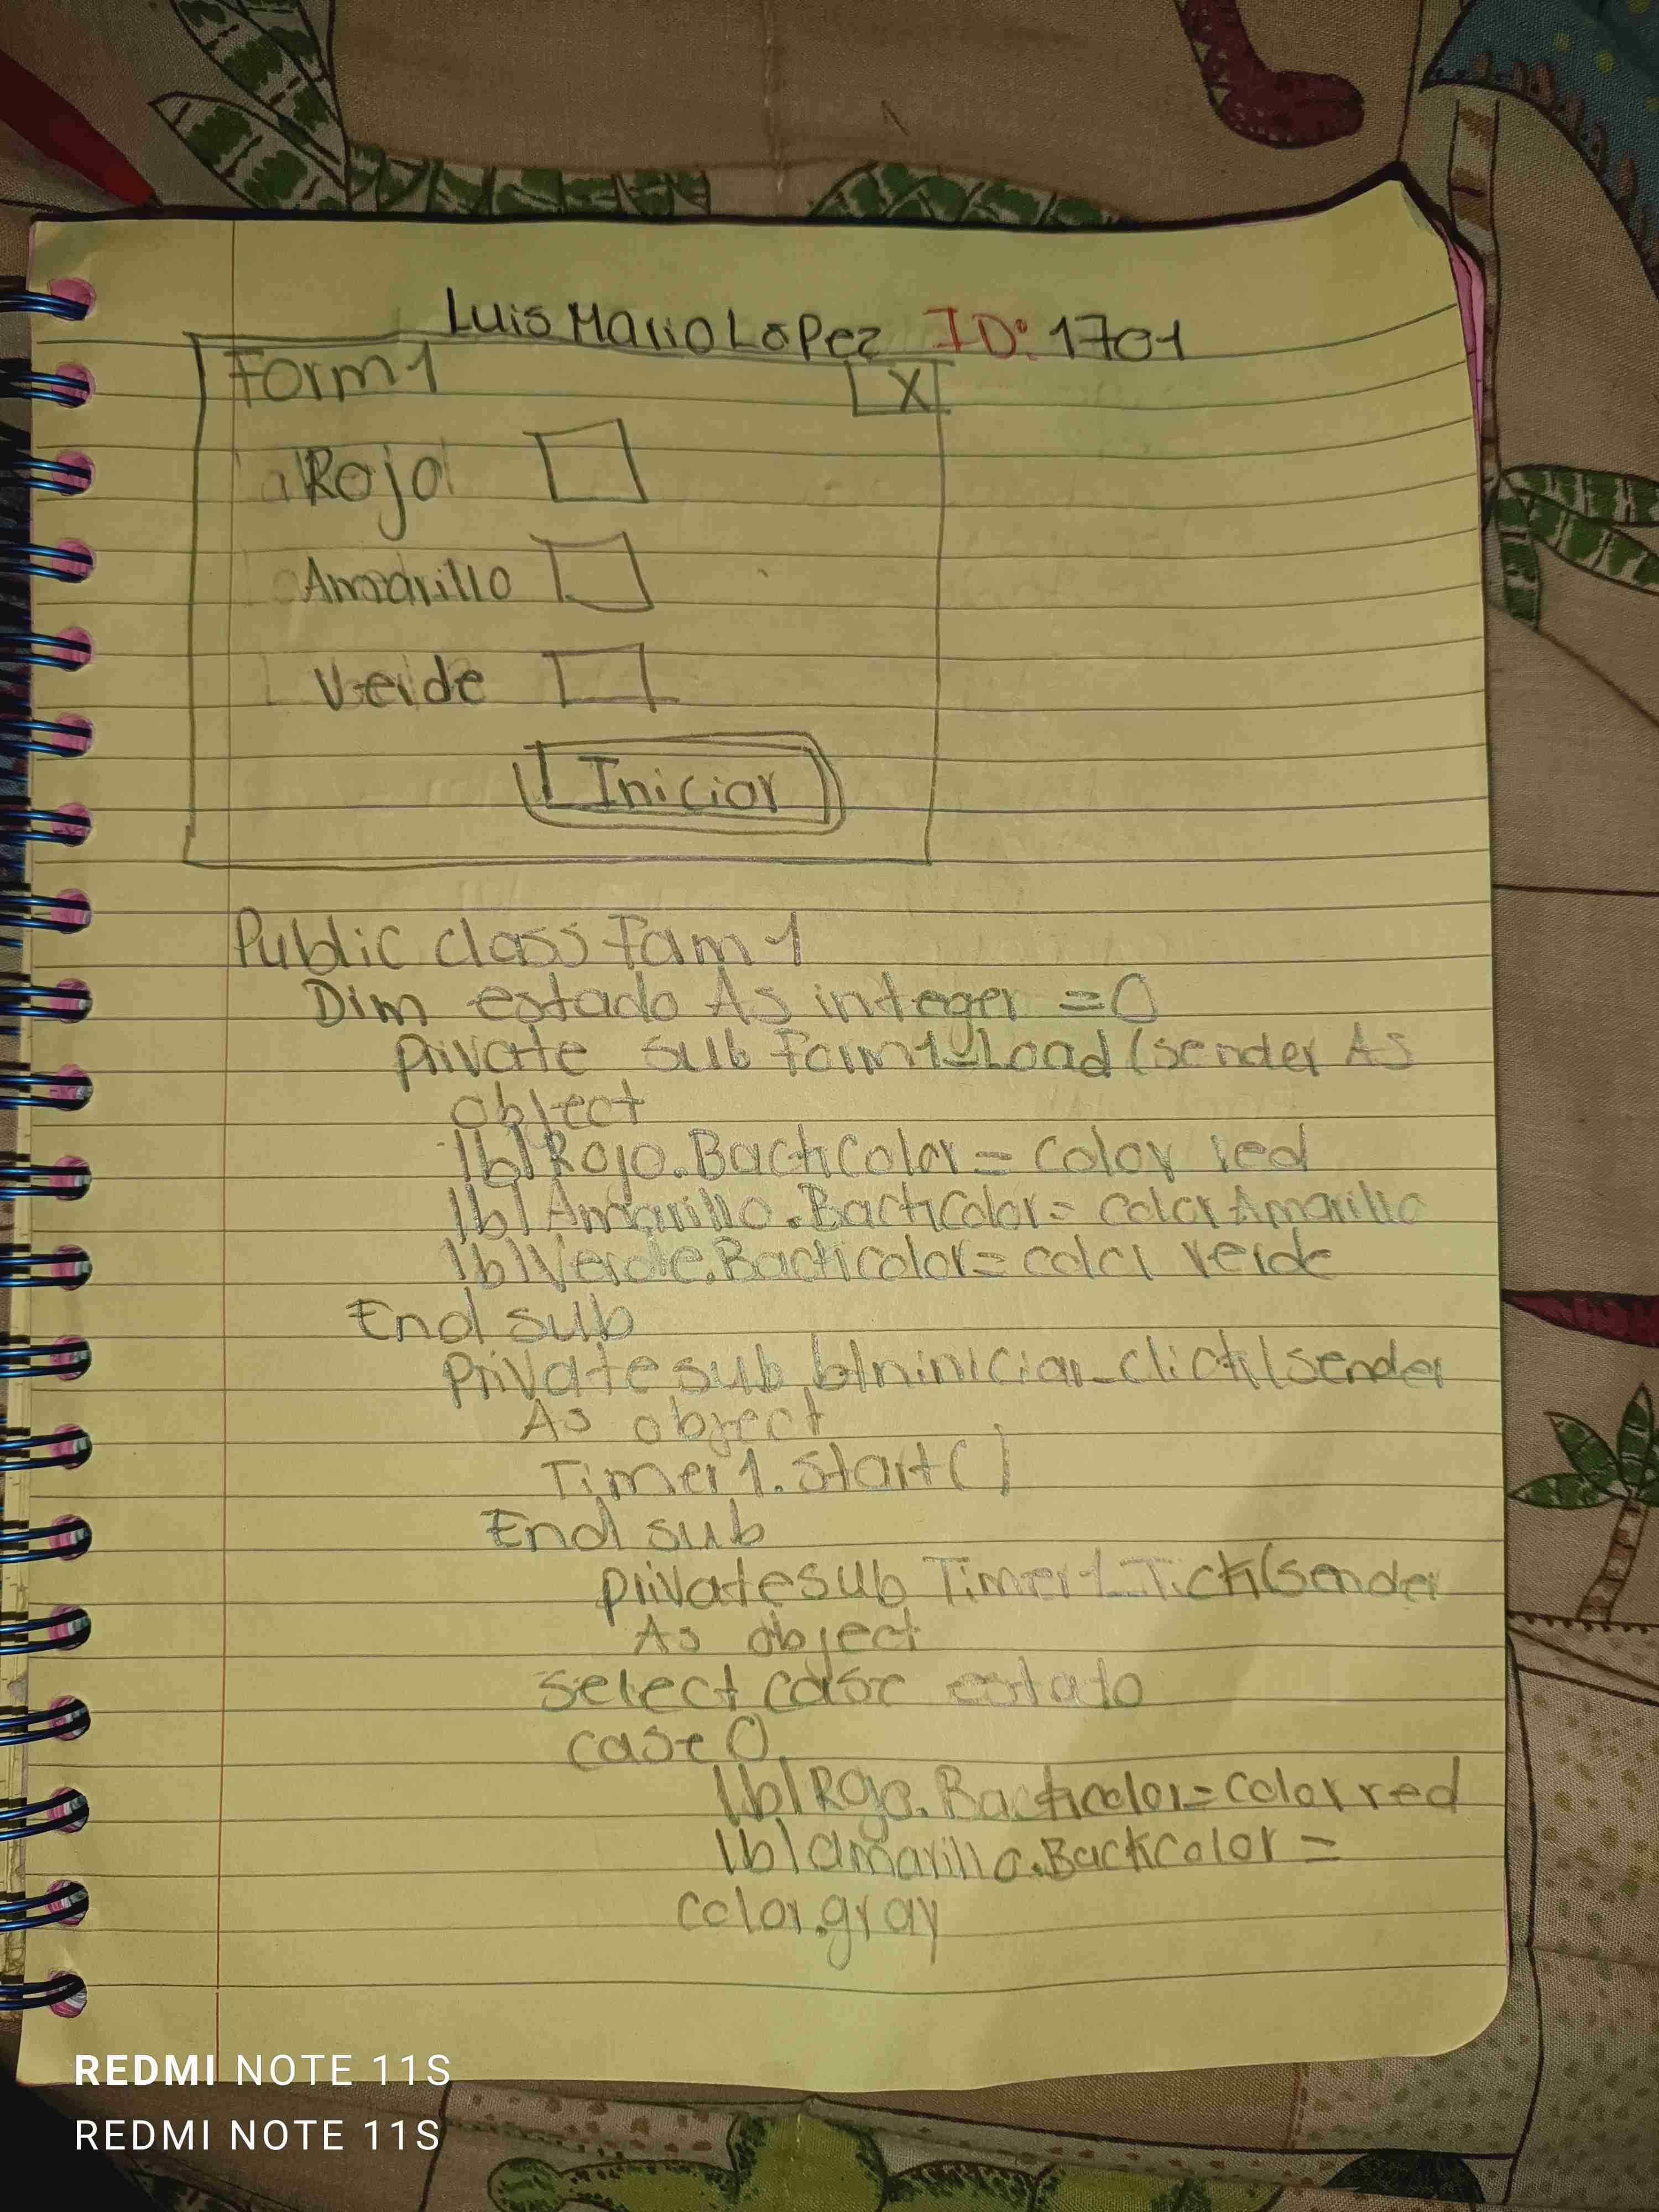 Luis Mario Lopez ID: 1701
Form 1
X
Rojo
Amarillo
Verde
Iniciar
Public class Fom 1
Dim estado As integer = 0
Private sub Form1_Load (sender As
object
lblRojo.BackColor = color red
lblAmarillo.BackColor = color Amarillo
lblVerde.Backcolor = color verde
End sub
Private sub btniniciar_click (sender
As object
Timer 1. Start ()
End sub
private sub Timer1_Tick (sender
As object
select case estado
case 0
lblRojo.Backcolor = color red
lblamarillo.Backcolor =
color.gray
REDMI NOTE 11S
REDMI NOTE 11S